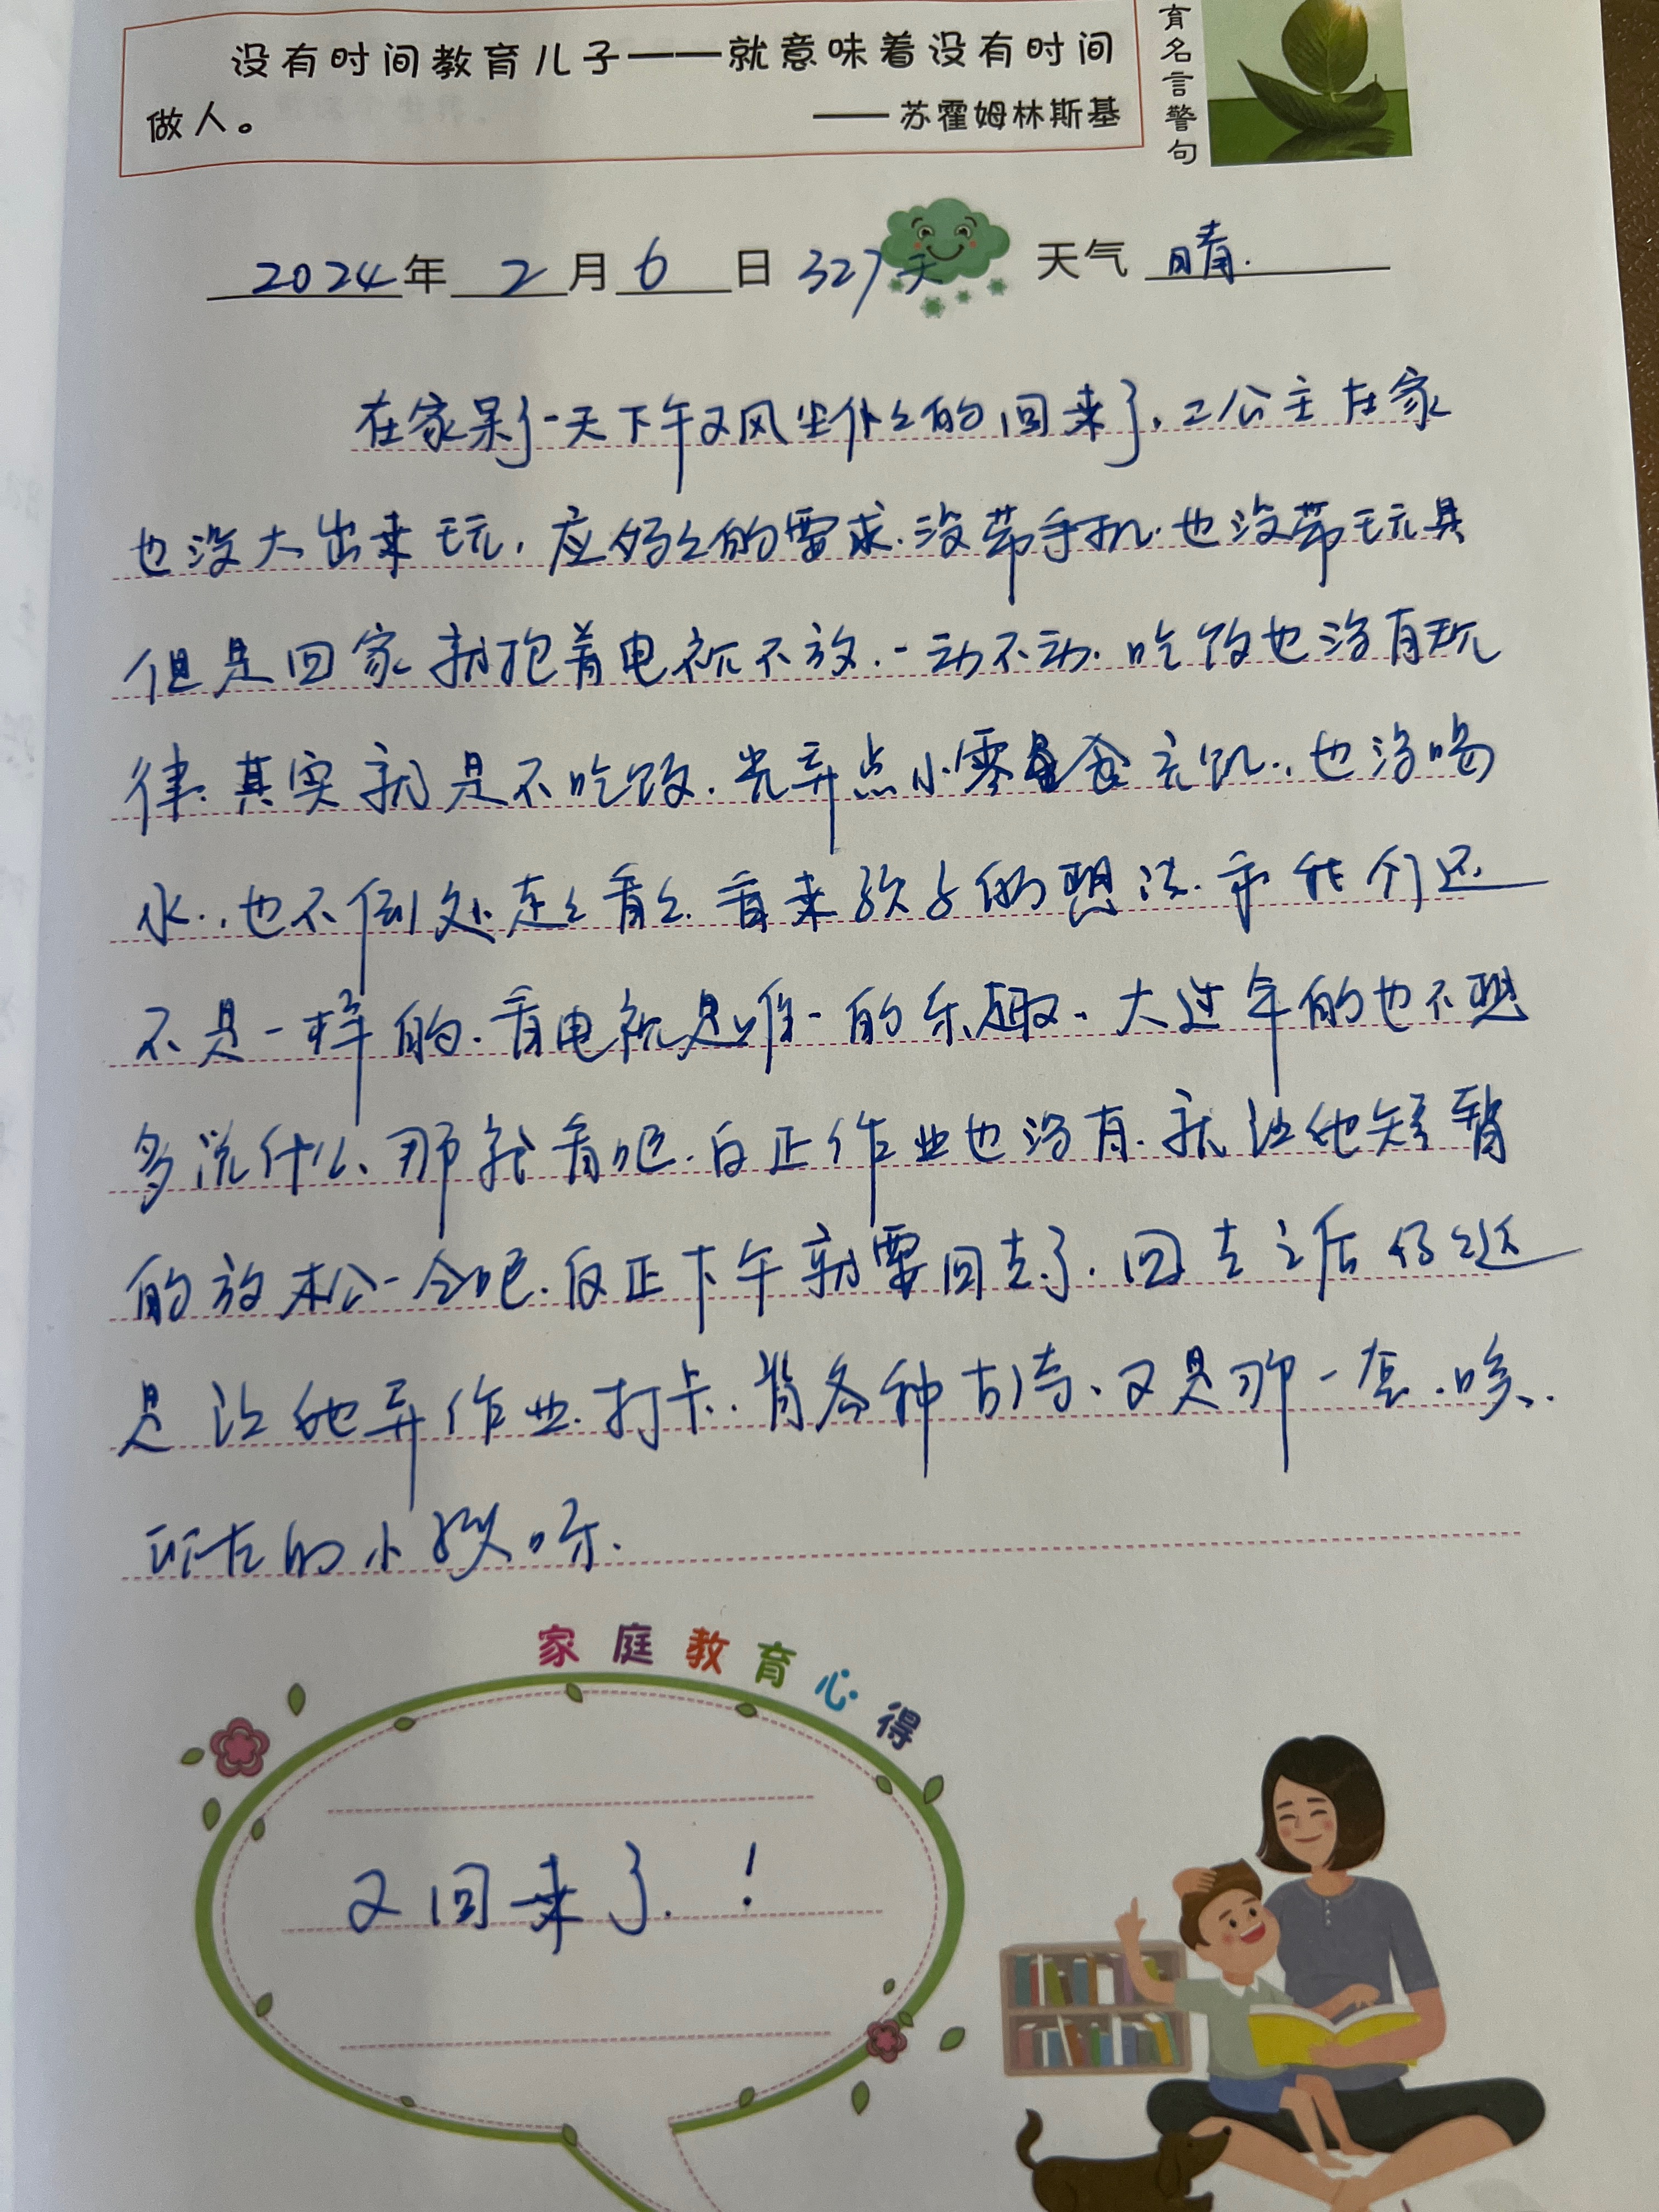 没有时间教育儿子——就意味着没有时间
做人。
——苏霍姆林斯基
育名言警句
2024年2月6日 327天 天气 晴.
在家呆了一天下午又风尘仆仆的回来了,二公主在家
也没大出来玩,应妈妈的要求.没带手机.也没带玩具
但是回家就抱着电视不放.一动不动.吃饭也没有规
律.其实就是不吃饭.光弄点小零食充饥.,也没喝
水.,也不到处走走看看.看来孩子的想法.和我们还
不是一样的.看电视是唯一的乐趣、大过年的也不想
多说什么、那就看吧.反正作业也没有.就让他短暂
的放松一会吧.反正下午就要回去了.回去之后仍然还
是让他弄作业.打卡.背各种古诗、又是那一套.唉.
可怜的小孩呀.
家庭教育心得
又回来了.!